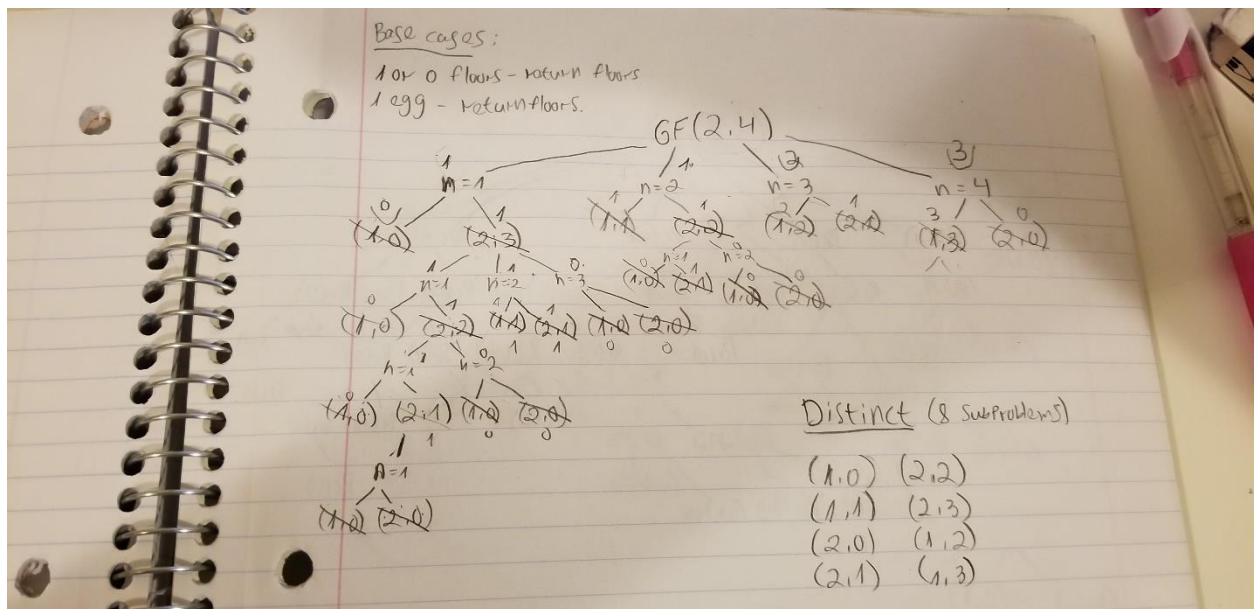 Base cases:
1 or 0 floors - return floors
1 egg - return floors.
GF(2,4)
1 1 (2) (3)
n=1 n=2 n=3 n=4
0 1 1 1 2 1 3 0
(1,0) (2,3) (1,1) (2,2) (1,2) (2,1) (1,3) (2,0)
1 1 0 1 0
n=1 n=2 n=3 n=1 n=2
0 0 0
(1,0) (2,1) (1,0) (2,0)
0 1 1 1
(1,0) (2,2) (1,1) (2,1) (1,0) (2,0)
1 1 0 0
1 0
n=1 n=2
0
(1,0) (2,1) (1,0) (2,0)
1 0 0
n=1
(1,0) (2,0)
Distinct (8 subproblems)
(1,0) (2,2)
(1,1) (2,3)
(2,0) (1,2)
(2,1) (1,3)